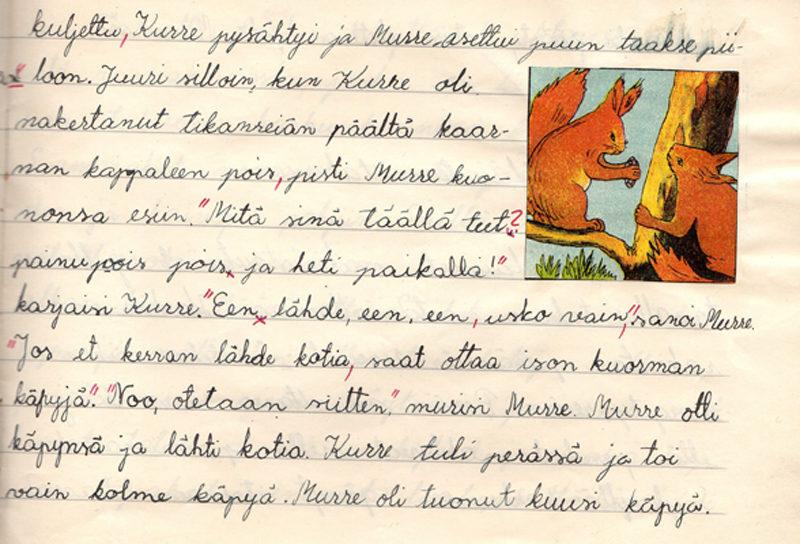 kuljettu, Kurre pysähtyi ja Murre asettui puun taakse pii-
loon. Juuri silloin, kun Kurre oli
nakertanut tikanreiän päältä kaar-
nan kappaleen pois, pisti Murre kuo-
nonsa esiin. "Mitä sinä täällä teet?
painu pois pois, ja heti paikalla!"
karjaisi Kurre. "Een, lähde, een, een, usko vain," sanoi Murre.
"Jos et kerran lähde kotia, saat ottaa ison kuorman
käpyjä." "Noo, otetaan siitten," murisi Murre. Murre otti
käpynsä ja lähti kotia. Kurre tuli perässä ja toi
vain kolme käpyä. Murre oli tuonut kuusi käpyä.